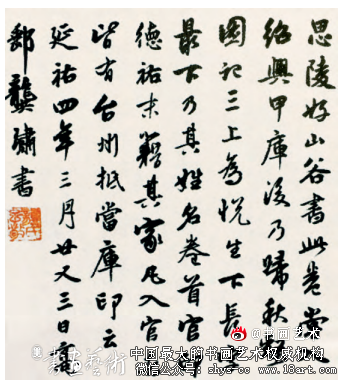 思陵好山谷書此卷嘗
紹興甲庫後乃歸秋壑
圖記三上為悅生下長
最下乃其姓名卷首官
德祐末籍其家凡入官
皆有台州抵當庫印云
延祐四年三月廿又三日高
郵龔璛書
书画艺术
书画艺术
中国最大的书画艺术权威机构
微信公众号：shys-cc www.18art.com